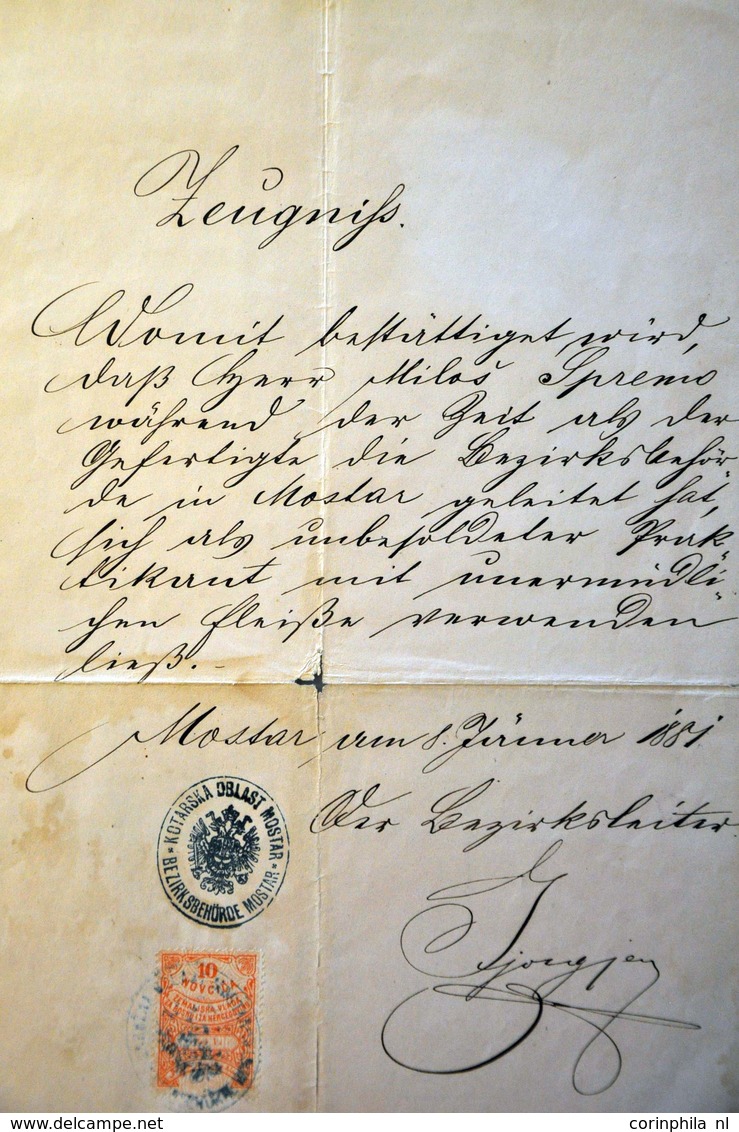 Zeugniß.
Womit bestättiget wird,
daß Herr Miloš Spremo
während der Zeit als der
Gefertigte die Bezirksbehör-
de in Mostar geleitet hat,
sich als unbesoldeter Prak-
tikant mit unermüdli-
chen Fleiße verwenden
ließ.-
Mostar, am 8. Jänner 1881.
Der Bezirksleiter
KOTARSKA OBLAST MOSTAR
* BEZIRKSBEHÖRDE MOSTAR *
10
NOVČIĆA
ZEMALJSKA VLADA
corinphila nl